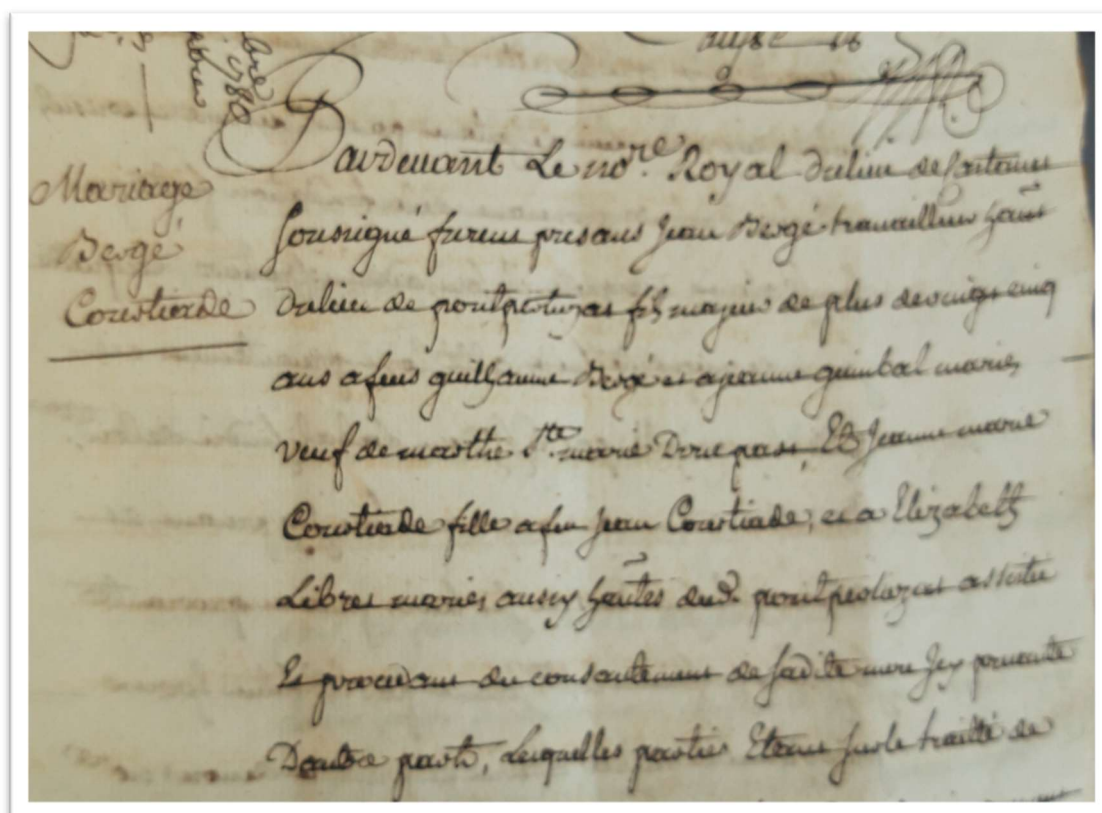 bre
1780
Mariage
Bergé
Courtiade
Pardevant Le no.re Royal du lieu de
sousigné furent presans Jean Bergé travailleur hant
du lieu de pouilpetuzas fils majeur de plus de vingt cinq
ans a feus guilhaume Bergé et a jeanne guimbal mariés
veuf de marthe S.te marie D'une part, Et Jeanne marie
Courtiade fille a feu Jean Courtiade, et a Elizabeth
Libres mariés aussy hantes dud. assistée
Et procedant du consentement de sadite mere Jcy presente
D'autre part, Lesquelles parties Etant sur le traitté de